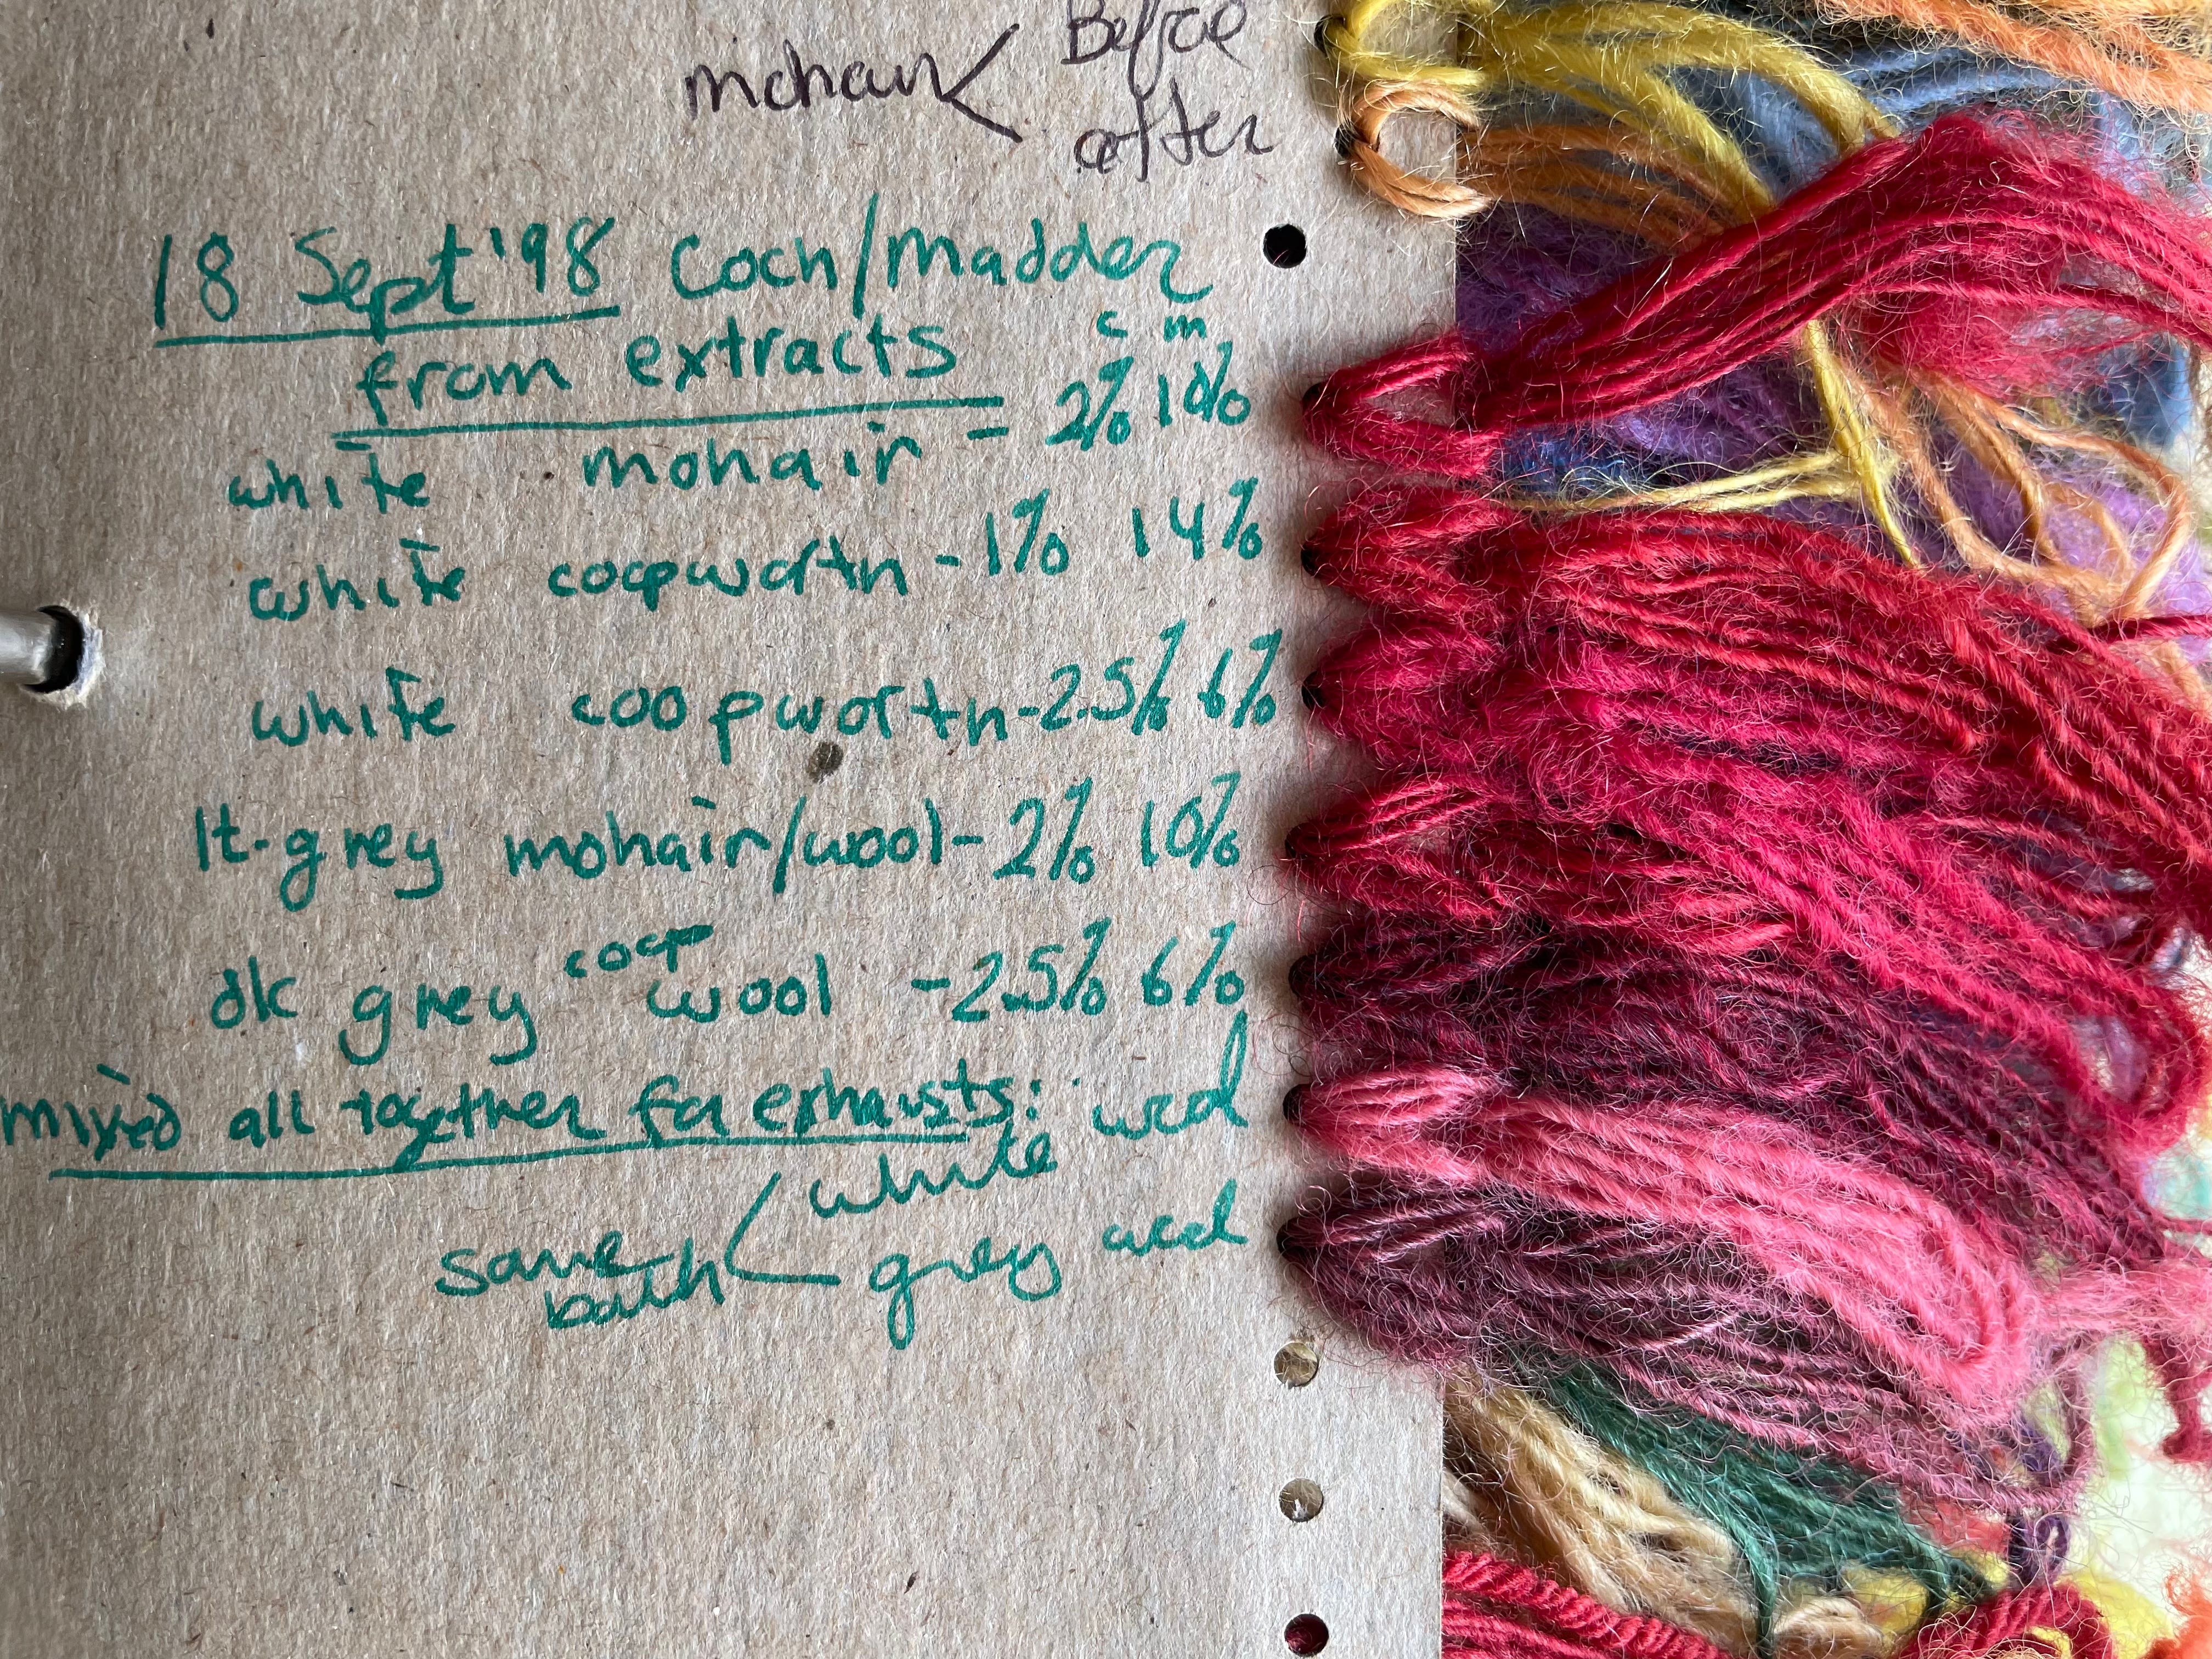 mohair < Before
after
18 Sept '98 Coch/Madder
from extracts
c m
white mohair - 2% 10%
white coopworth - 1% 14%
white coopworth - 2.5% 6%
lt. grey mohair/wool - 2% 10%
coop
dk grey wool - 2.5% 6%
mixed all together for exhausts:
white wool
same bath < grey wool